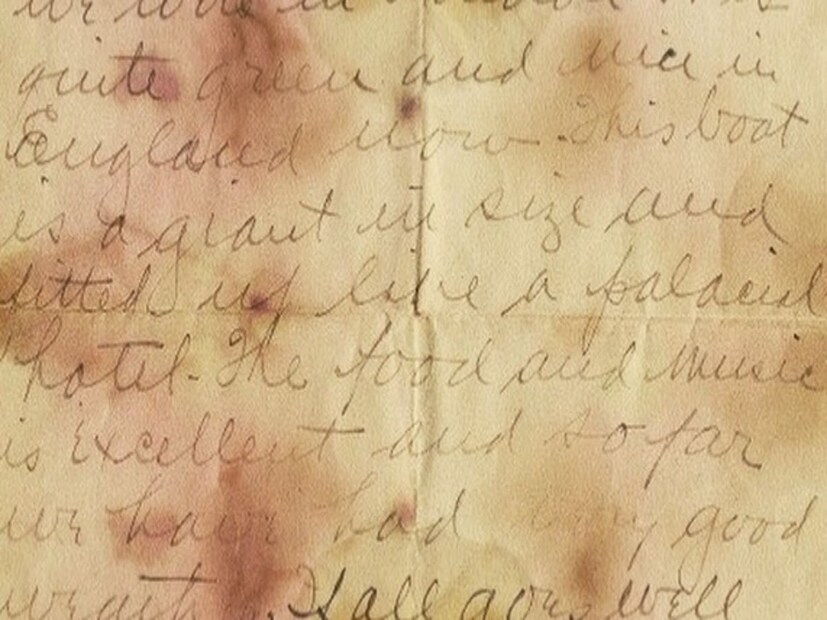 quite green and nice in
England now This boat
is a giant in size and
fitted up like a palacial
hotel. The food and music
is excellent and so far
we have had very good
weather. If all goes well